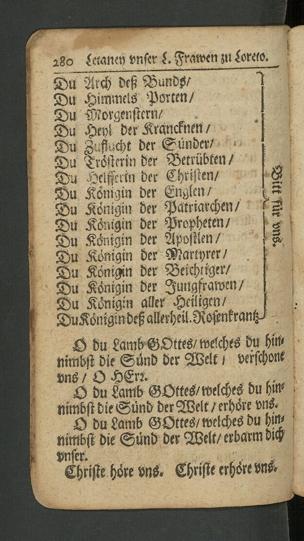 280 Letaney vnser L. Frawen zu Loreto.
Du Arch deß Bunds/
Du Himmels Porten/
Du Morgenstern/
Du Heyl der Krancknen/
Du Zuflucht der Sünder/
Du Trösterin der Betrübten/
Du Helfferin der Christen/
Du Königin der Englen/
Du Königin der Patriarchen/
Du Königin der Propheten/
Du Königin der Apostlen/
Du Königin der Martyrer/
Du Königin der Beichtiger/
Du Königin der Jungfrawen/
Du Königin aller Heiligen/
Du Königin deß allerheil. Rosenkrantz
Bitt für vns.
O du Lamb GOttes/ welches du hin-
nimbst die Sünd der Welt/ verschone
vns/ O HErr.
O du Lamb GOttes/ welches du hin-
nimbst die Sünd der Welt/ erhöre vns.
O du Lamb GOttes/ welches du hin-
nimbst die Sünd der Welt/ erbarm dich
vnser.
Christe höre vns. Christe erhöre vns.